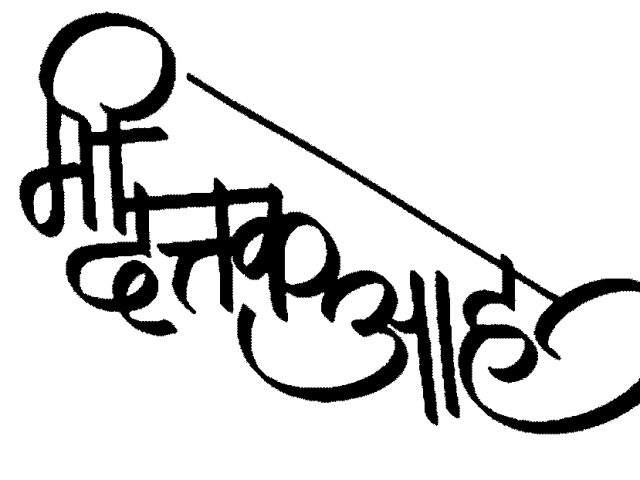 मी
दत्तक
आहे